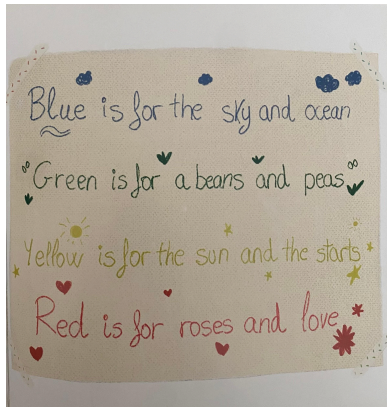 Blue is for the sky and ocean
"Green is for a beans and peas"
Yellow is for the sun and the starts
Red is for roses and love